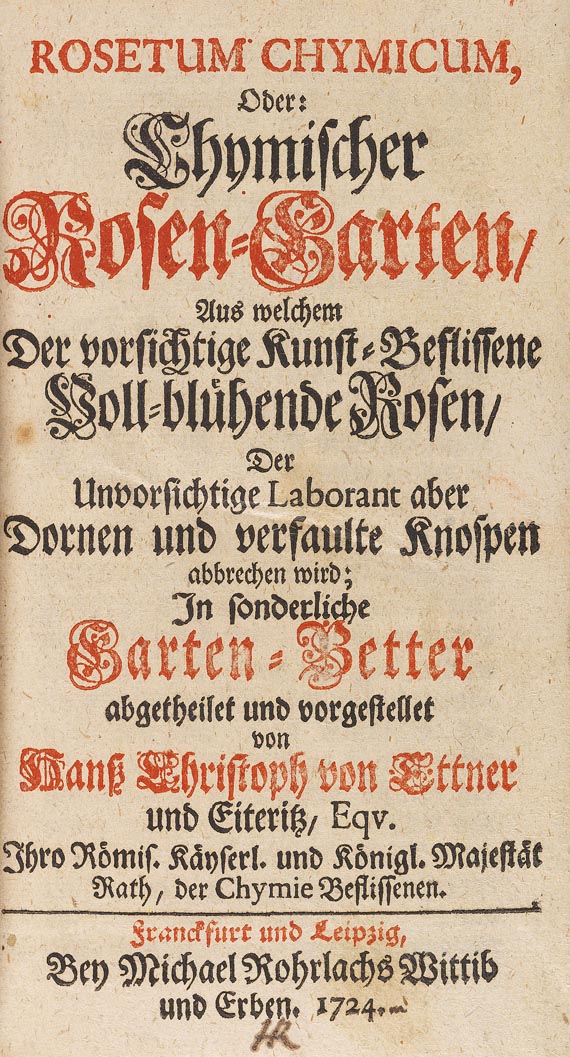 ROSETUM CHYMICUM,
Oder:
Chymischer
Rosen-Garten/
Aus welchem
Der vorsichtige Kunst-Beflissene
Voll-blühende Rosen/
Der
Unvorsichtige Laborant aber
Dornen und verfaulte Knospen
abbrechen wird;
In sonderliche
Garten-Better
abgetheilet und vorgestellet
von
Hanß Christoph von Ettner
und Eiteritz/ Eqv.
Ihro Römis. Käyserl. und Königl. Majestät
Rath, der Chymie Beflissenen.
Franckfurt und Leipzig,
Bey Michael Rohrlachs Wittib
und Erben. 1724.
HR